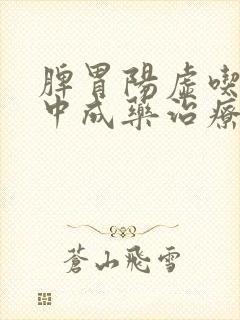 脾胃陽虛喫
中成藥治療
蒼山飛雪